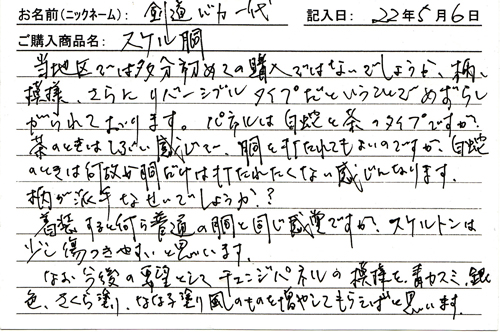 お名前(ニックネーム): 剣道バカ一代 記入日: 22年5月6日
ご購入商品名: スケル胴
当地区では多分初めての購入ではないでしょうか、柄、
模様、さらにリバーシブルタイプだということでめずらし
がられております。パネルは白蛇と茶のタイプですが、
茶のときはしぶい感じで、胴を打たれてもよいのですが、白蛇
のときは何故か胴だけは打たれたくない感じになります。
柄が派手なせいでしょうか?
着装すると何ら普通の胴と同じ感覚ですが、スケルトンは
少し傷つきやすいと思います。
なお今後の要望としてチェンジパネルの模様を、青カスミ、銀
色、さくら塗り、ななこ塗り風のものを増やしてもらえばと思います。